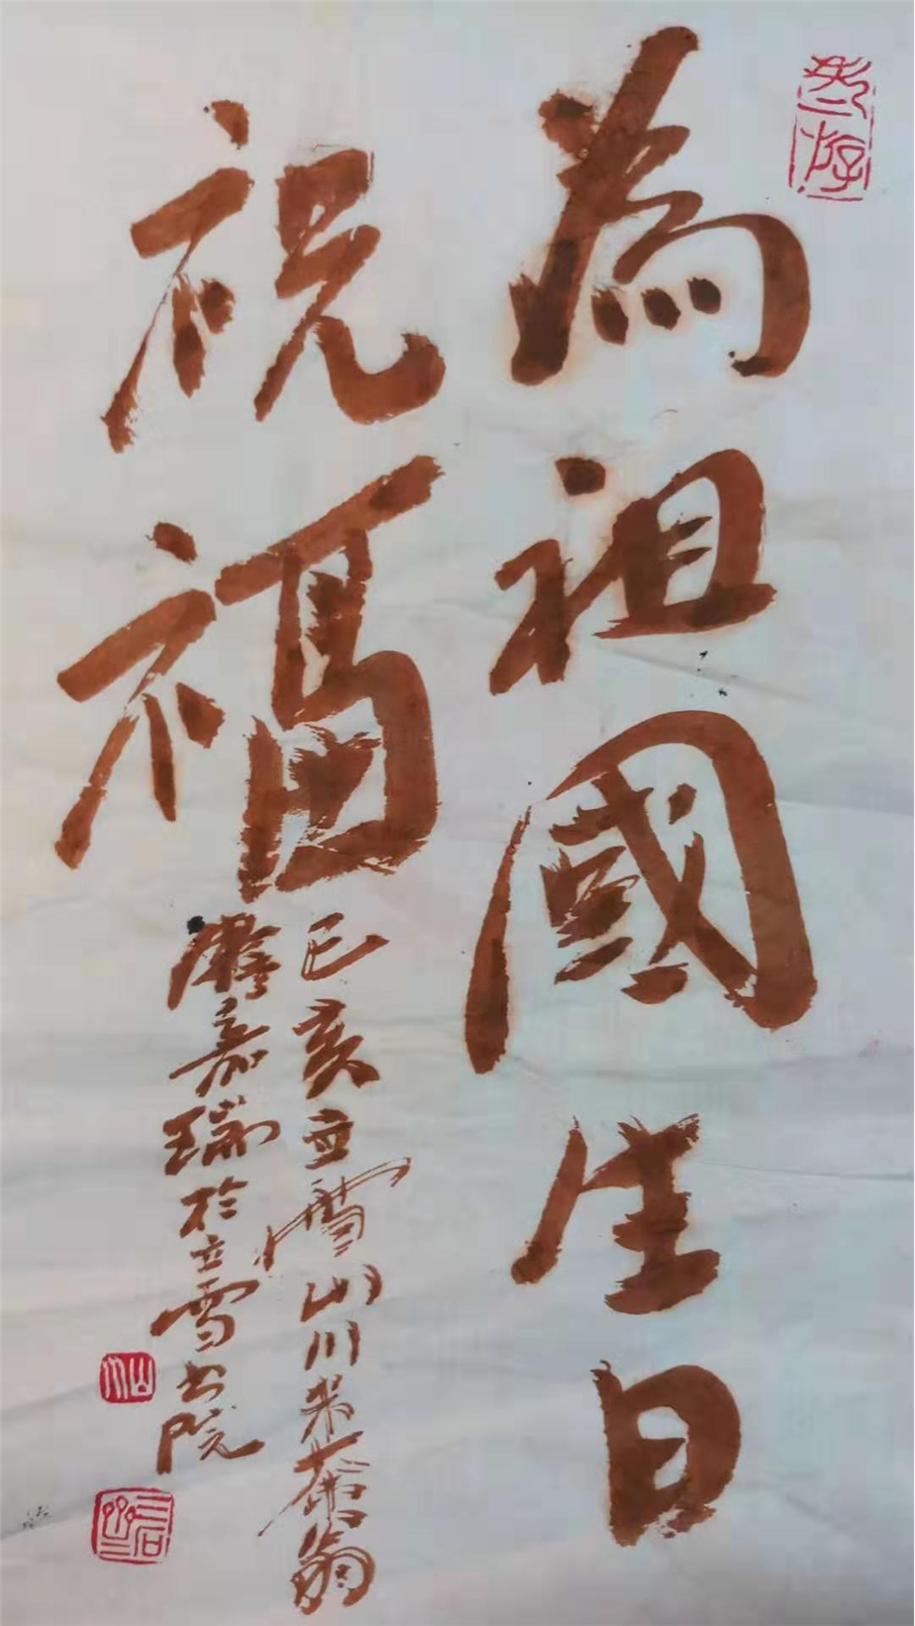 為祖國生日
祝福
己亥立雪山川米茶翁
廖嘉瑞於立雪書院
山川